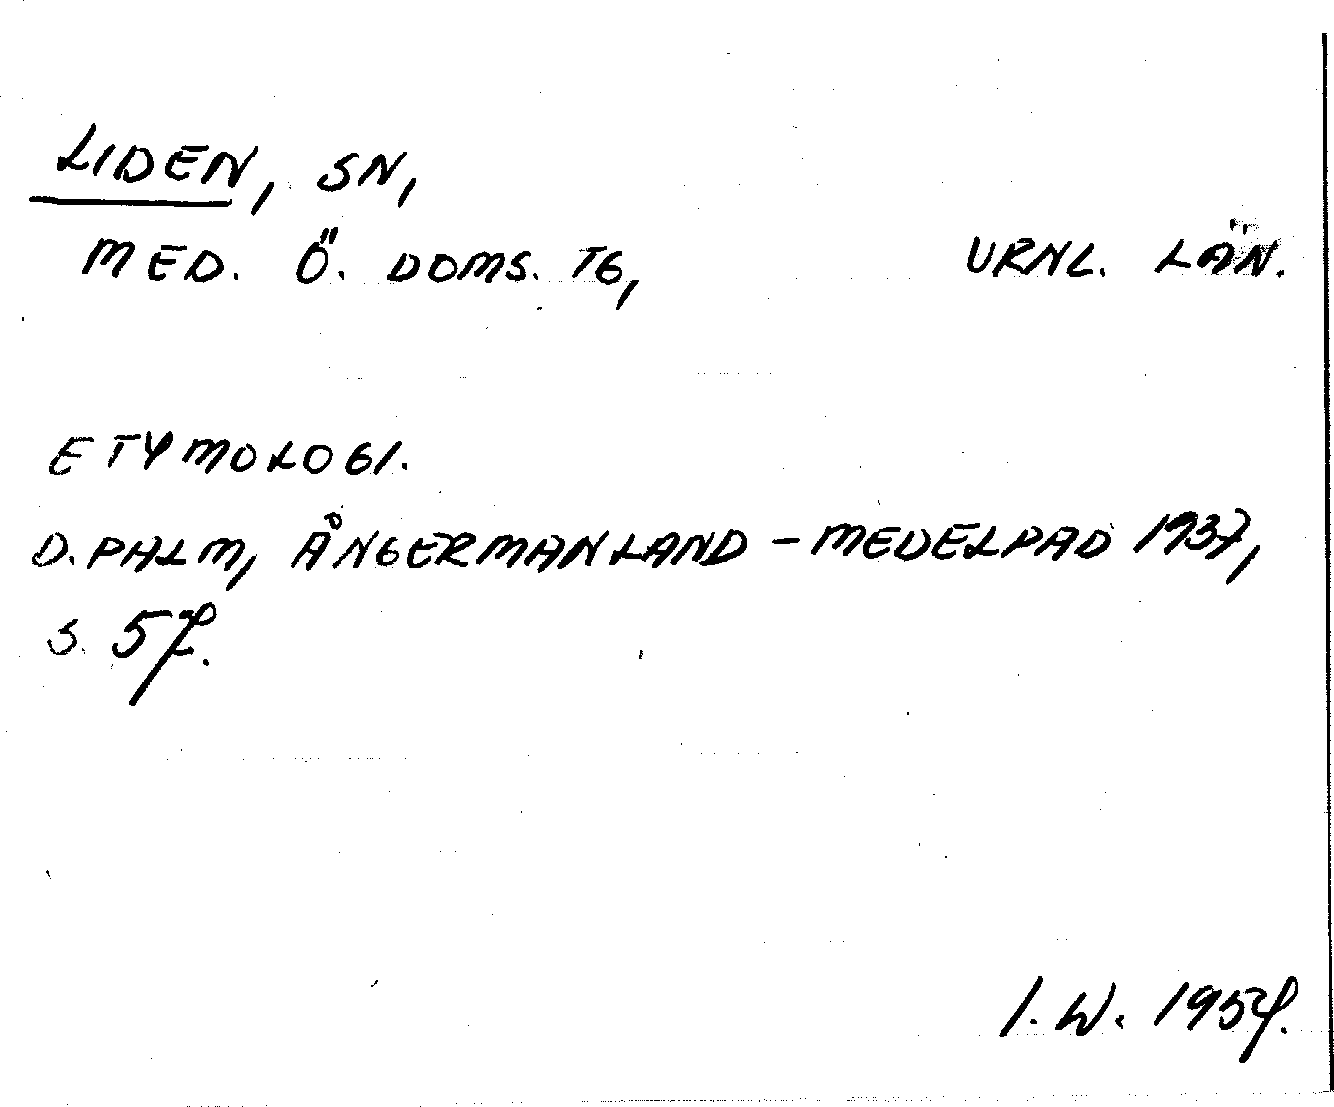 LIDEN, SN,
MED. Ö. DOMS. TG, VRNL. LÄN.
ETYMOLOGI.
D. PALM, ÅNGERMANLAND - MEDELPAD 1937,
S. 57.
I. W. 1957.